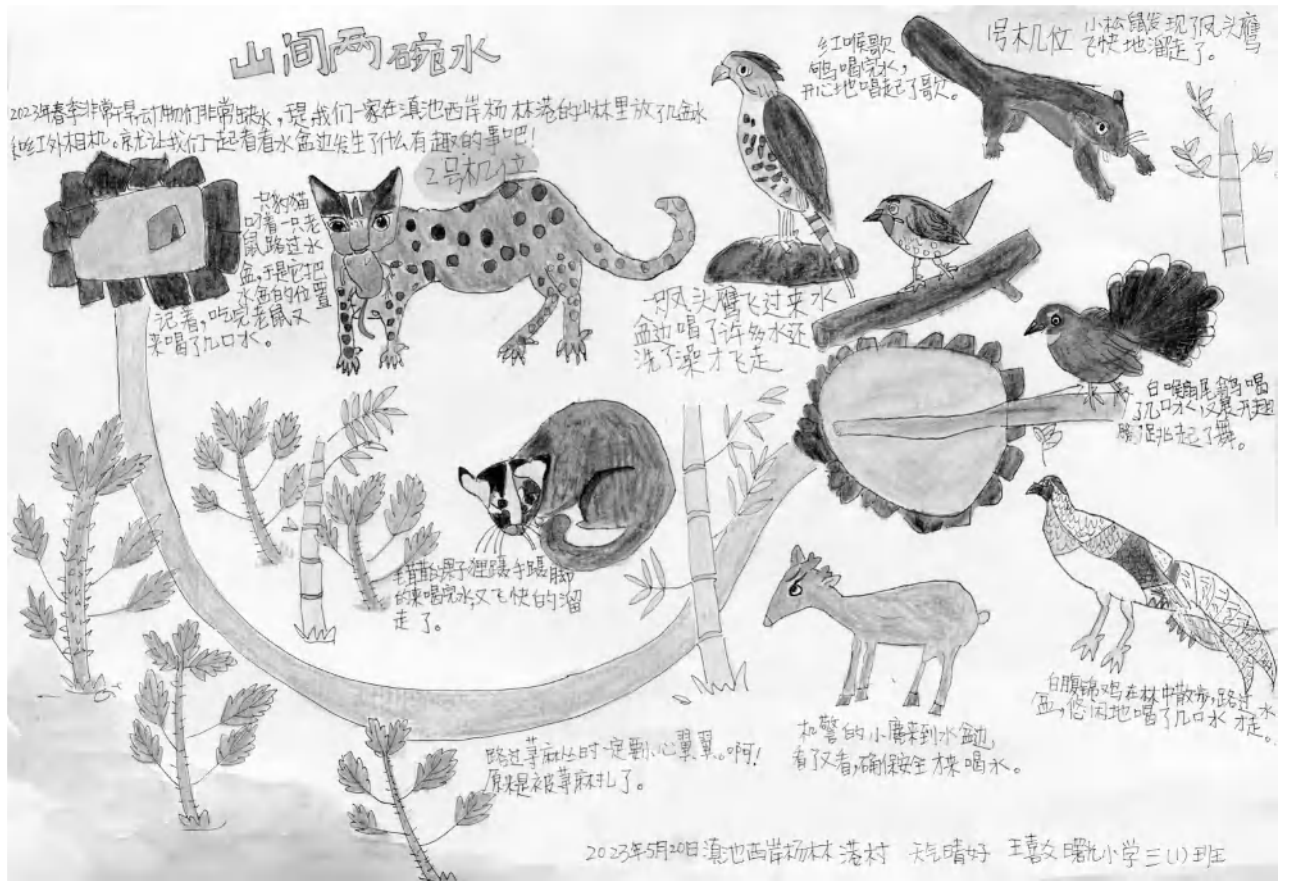 山间两碗水
2023年春季非常干旱,动物们非常缺水,于是我们一家在滇池西岸杨林港的山林里放了几盆水
和红外相机。就让我们一起看看水盆边发生了什么有趣的事吧!
2号机位
一只豹猫
叼着一只老
鼠路过水
盆,于是它把
水盆的位置
记着,吃完老鼠又
来喝了几口水。
红喉歌
鸲喝完水,
开心地唱起了歌。
1号机位
小松鼠发现了凤头鹰
飞快地溜走了。
一只凤头鹰飞过来水
盆边喝了许多水还
洗了澡才飞走
白喉扇尾鹟喝
了几口水,又展开翅
膀跳起了舞。
果子狸蹑手蹑脚
的来喝完水,又飞快的溜
走了。
白腹锦鸡在林中散步,路过水
盆,悠闲地喝了几口水才走。
机警的小麂来到水盆边,
看了又看,确保安全才来喝水。
路过荨麻丛时一定要小心翼翼。啊!
原来是被荨麻扎了。
2023年5月20日滇池西岸杨林港村 天气晴好 王喜文 曙光小学三(1)班